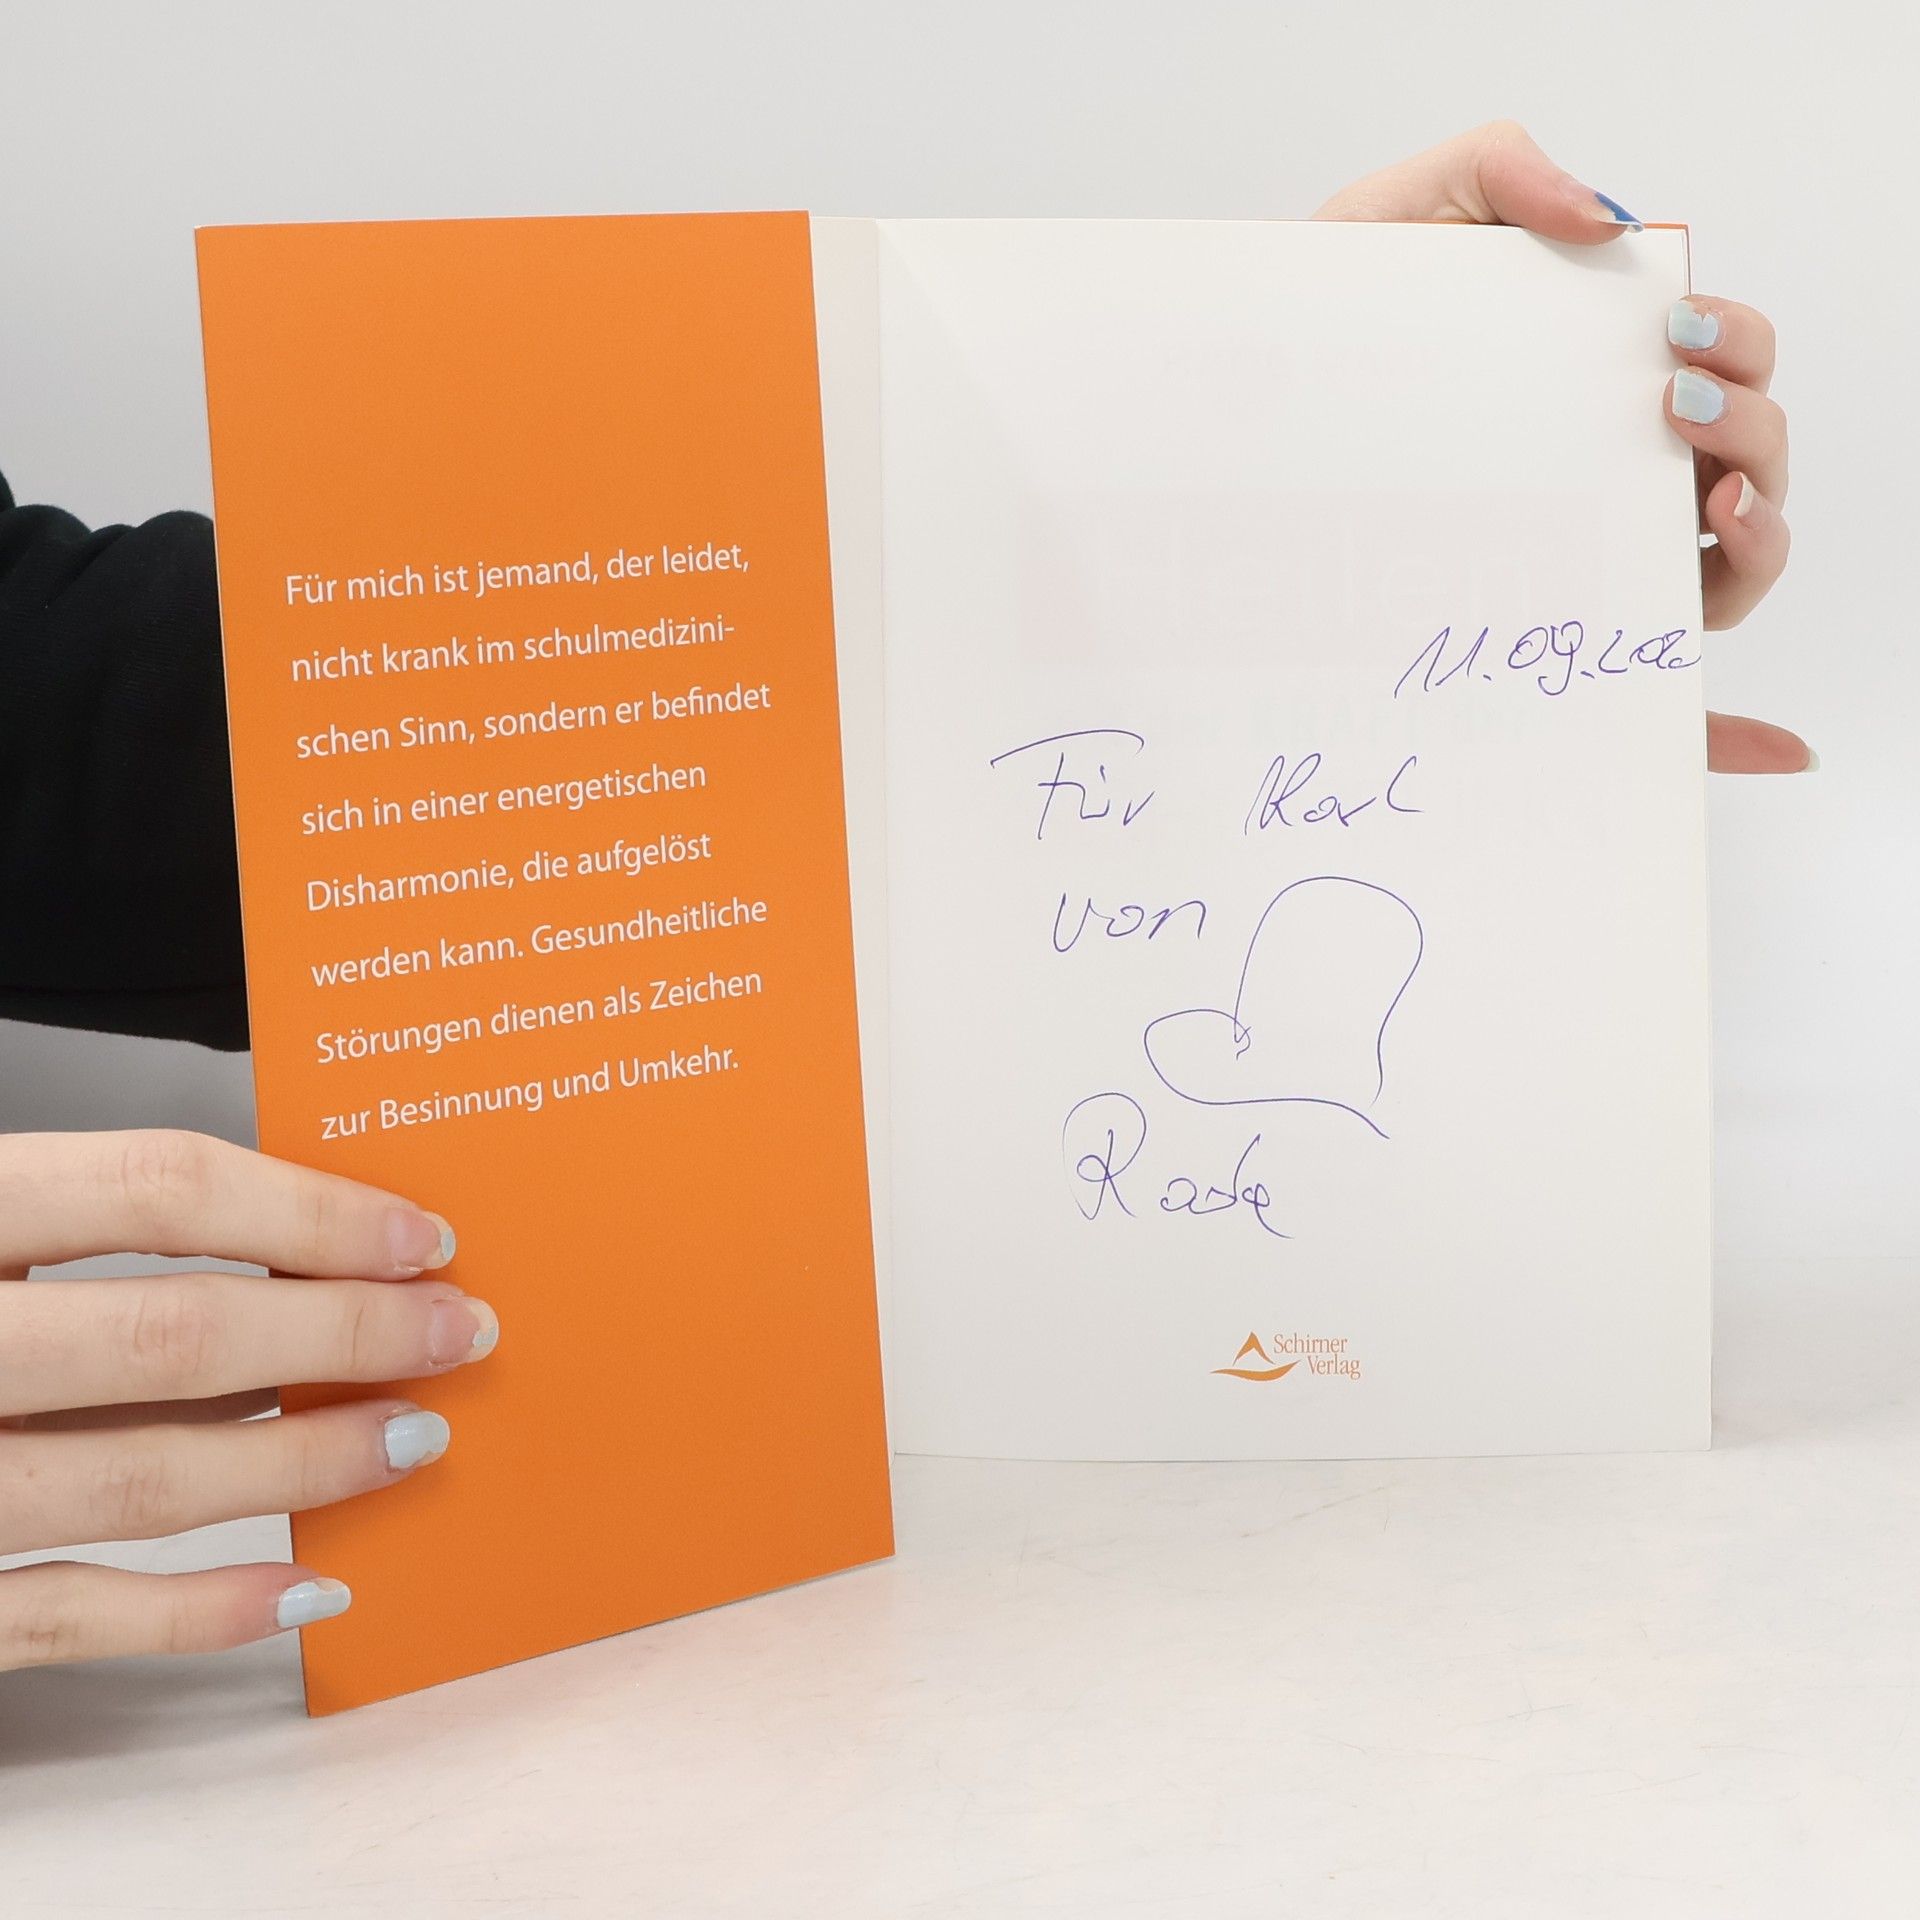 Für mich ist jemand, der leidet,
nicht krank im schulmedizini-
schen Sinn, sondern er befindet
sich in einer energetischen
Disharmonie, die aufgelöst
werden kann. Gesundheitliche
Störungen dienen als Zeichen
zur Besinnung und Umkehr.
11.09.202
Für Karl
von
Schirner
Verlag